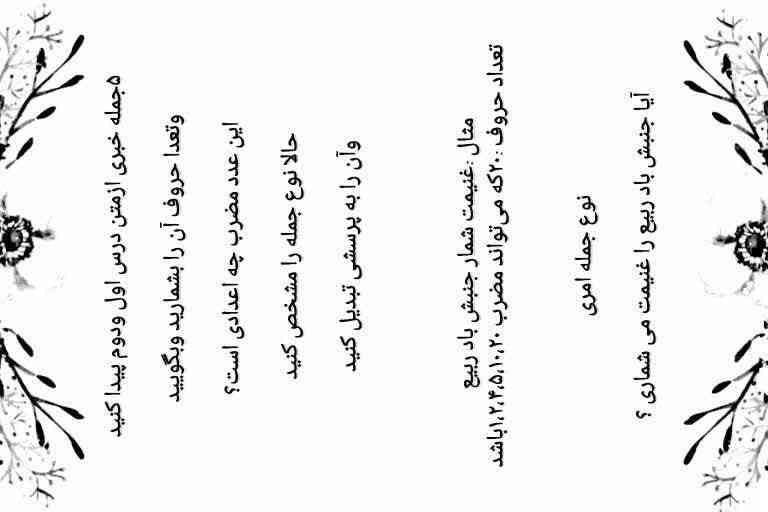 ۵جمله خبری ازمتن درس اول ودوم پیدا کنید
وتعدا حروف آن را بشمارید وبگویید
این عدد مضرب چه اعدادی است؟
حالا نوع جمله را مشخص کنید
وآن را به پرسشی تبدیل کنید
مثال :غنیمت شمار جنبش باد ربیع
تعداد حروف :۲۰که می‌تواند مضرب ۱،۲،۴،۵،۱۰،۲۰باشد
نوع جمله امری
آیا جنبش باد ربیع را غنیمت می شماری ؟